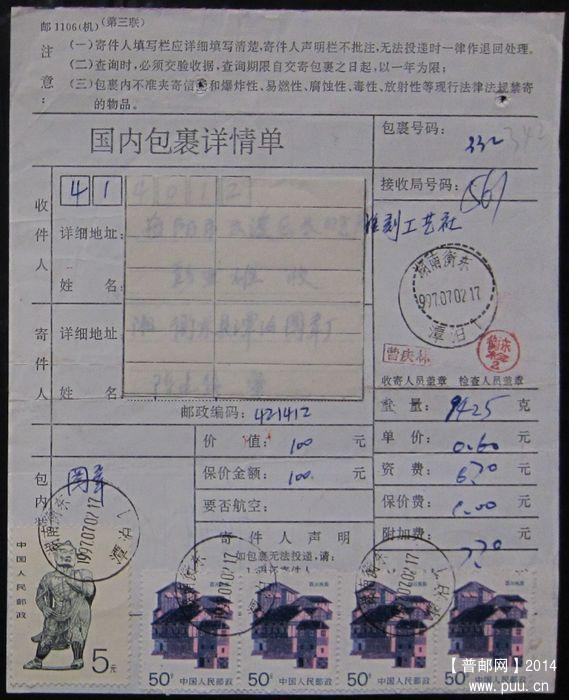 邮1106(机)(第三联)
注意:
(一)寄件人填写栏应详细填写清楚,寄件人声明栏不批注,无法投递时一律作退回处理。
(二)查询时,必须交验收据,查询期限自交寄包裹之日起,以一年为限;
(三)包裹内不准夹寄信和爆炸性、易燃性、腐蚀性、毒性、放射性等现行法律法规禁寄
的物品。
国内包裹详情单
包裹号码:
332
342
接收局号码:
561
收件人
41
4012
详细地址:
雕刻工艺社
姓名:
收
寄件人
详细地址:
姓名:
邮政编码:421412
湖南衡东
1997.07.02.17
潭泊
曹庆林
收寄人员盖章 检查人员盖章
重量: 9425 克
单价: 0.60 元
资费: 6.20 元
保价费: 1.00 元
附加费: 元
7.20 元
价值: 100 元
保价金额: 100. 元
要否航空:
包内装
图章
寄件人声明
如包裹无法投递,请:
湖南衡东
1997.07.02.17
潭泊
湖南衡东
1997.07.02.17
潭泊
湖南衡东
1997.07.02.17
潭泊
中国人民邮政
5元
四川民居
50分 中国人民邮政
四川民居
50分 中国人民邮政
四川民居
50分 中国人民邮政
四川民居
50分 中国人民邮政
【普邮网】2014
www.puu.cn